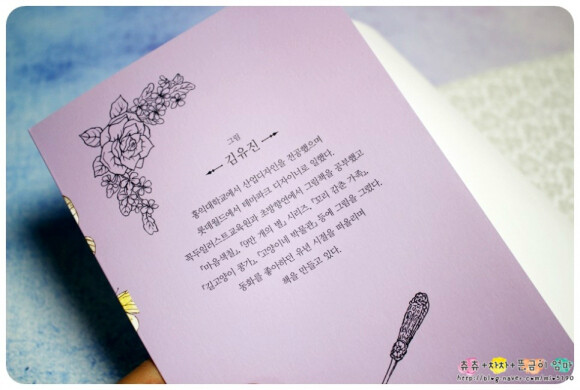 그림
김유진
홍익대학교에서 산업디자인을 전공했으며
롯데월드에서 테마파크 디자이너로 일했다.
꼭두일러스트교육원과 초방향연에서 그림책을 공부했고
『마음색칠』, 『9만 개의 별』 시리즈, 『꼬리 감춘 가족』,
『길고양이 콩가』, 『고양이네 박물관』 등에 그림을 그렸다.
동화를 좋아하던 유년 시절을 떠올리며
책을 만들고 있다.
츄츄+차차+뜬금이 엄마
http://blog.naver.com/mio5190